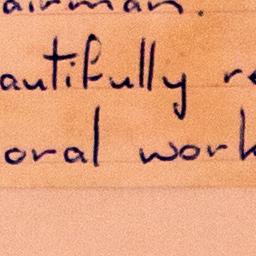 airman.
autifully re
oral work